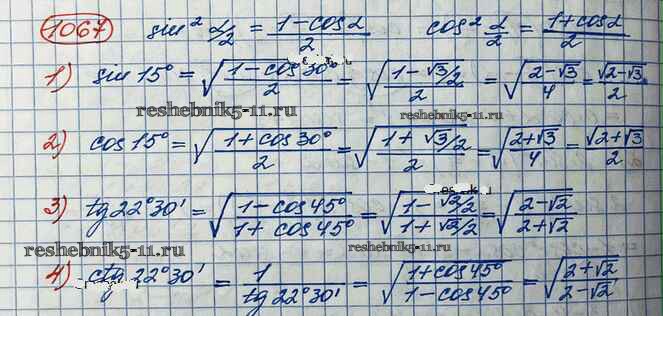 1067 sin² α/2 = (1-cosα)/2 cos² α/2 = (1+cosα)/2
1) sin 15° = √((1-cos 30°)/2) = √((1-√3/2)/2) = √((2-√3)/4) = √(2-√3)/2
reshebnik5-11.ru
2) cos 15° = √((1+cos 30°)/2) = √((1+√3/2)/2) = √((2+√3)/4) = √(2+√3)/2
3) tg 22°30' = √((1-cos 45°)/(1+cos 45°)) = √((1-√2/2)/(1+√2/2)) = √((2-√2)/(2+√2))
reshebnik5-11.ru reshebnik5-11.ru
4) ctg 22°30' = 1/(tg 22°30') = √((1+cos 45°)/(1-cos 45°)) = √((2+√2)/(2-√2))